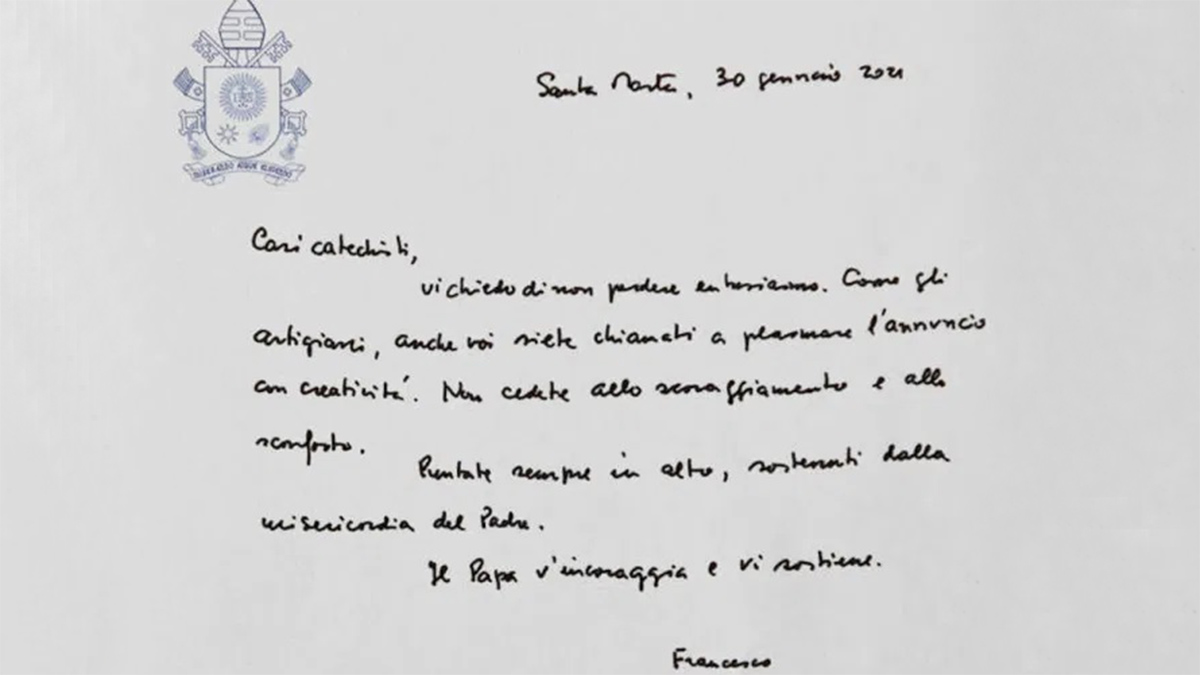 IHS
MISERANDO ATQUE ELIGENDO
Santa Marta, 30 gennaio 2021
Cari catechisti,
vi chiedo di non perdere entusiasmo. Come gli
artigiani, anche voi siete chiamati a plasmare l'annuncio
con creatività. Non cedete allo scoraggiamento e allo
sconforto.
Puntate sempre in alto, sostenuti dalla
misericordia del Padre.
Il Papa v'incoraggia e vi sostiene.
Francesco